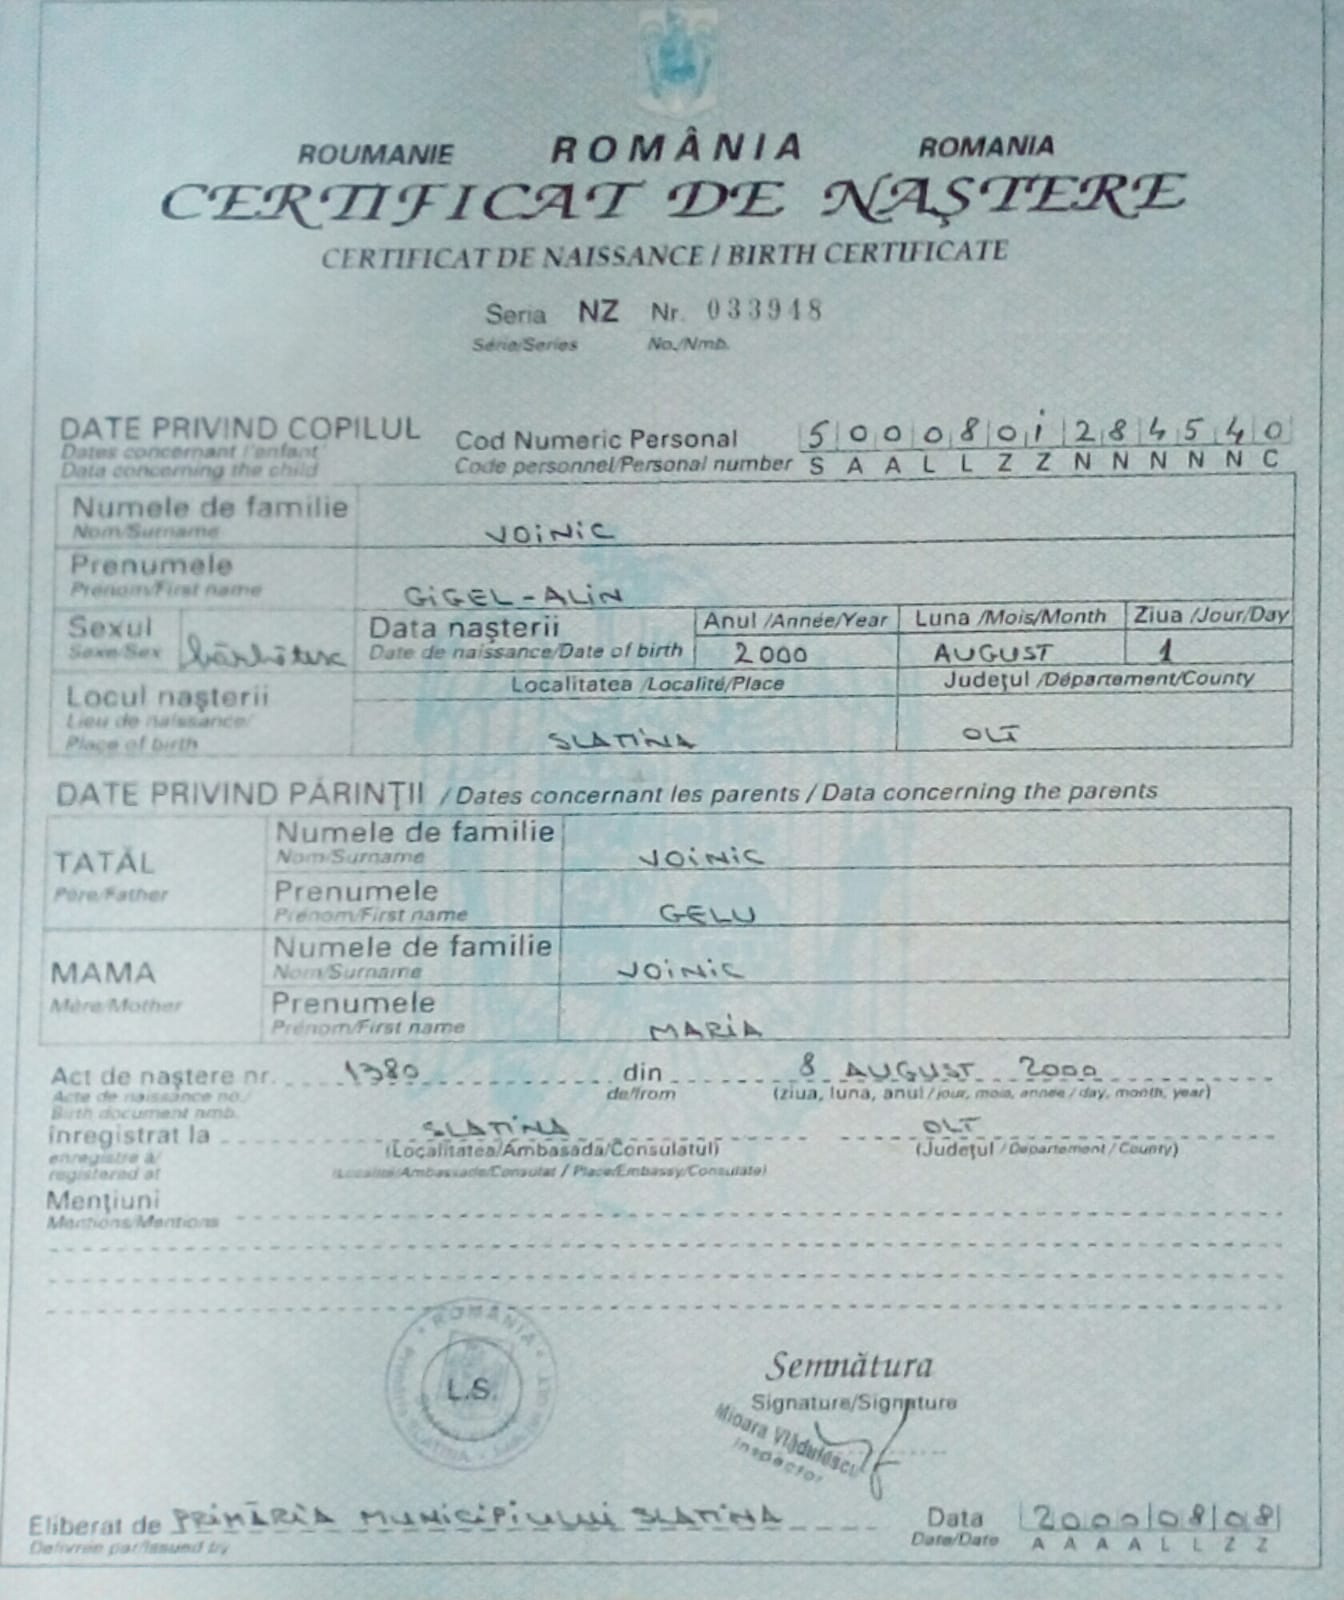 ROUMANIE ROMÂNIA ROMANIA
CERTIFICAT DE NAŞTERE
CERTIFICAT DE NAISSANCE / BIRTH CERTIFICATE
Seria NZ Nr. 033948
Série/Series No./Nmb.
DATE PRIVIND COPILUL
Dates concernant l'enfant
Data concerning the child
Cod Numeric Personal 5 0 0 0 8 0 1 2 8 4 5 4 0
Code personnel/Personal number S A A L L Z Z N N N N N C
Numele de familie
Nom/Surname
VOINIC
Prenumele
Prénom/First name
GIGEL-ALIN
Sexul
Sexe/Sex
bărbătesc
Data naşterii
Date de naissance/Date of birth
Anul /Année/Year Luna /Mois/Month Ziua /Jour/Day
2000 AUGUST 1
Locul naşterii
Lieu de naissance/
Place of birth
Localitatea /Localité/Place Judeţul /Département/County
SLATINA OLT
DATE PRIVIND PĂRINŢII / Dates concernant les parents / Data concerning the parents
TATĂL
Père/Father
Numele de familie
Nom/Surname
VOINIC
Prenumele
Prénom/First name
GELU
MAMA
Mère/Mother
Numele de familie
Nom/Surname
VOINIC
Prenumele
Prénom/First name
MARIA
Act de naştere nr. 1380 din 8 AUGUST 2000
Acte de naissance no./ de/from (ziua, luna, anul / jour, mois, année / day, month, year)
Birth document nmb.
înregistrat la SLATINA OLT
enregistre à/ (Localitatea/Ambasada/Consulatul) (Judeţul / Departement / County)
registered at (Localité/Ambassade/Consulat / Place/Embassy/Consulate)
Menţiuni
Mentions/Mentions
ROMÂNIA
L.S.
SLATINA
Semnătura
Signature/Signature
Mioara Vlădulescu
Inspector
Eliberat de PRIMĂRIA MUNICIPIULUI SLATINA Data 2000 08 08
Délivrée par/Issued by Date/Date A A A A L L Z Z